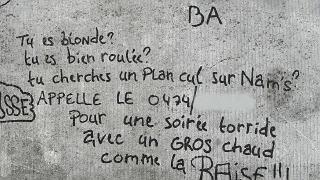 BA
Tu es blonde?
tu es bien roulée?
tu cherches un Plan cul sur Nam's?
SSE APPELLE LE 0474/
Pour une soirée torride
avec un GROS chaud
comme la BAISE!!!